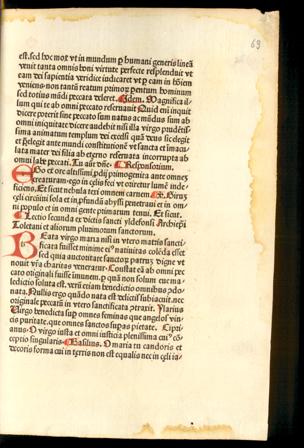 69
est. sed hoc moꝛ vt in mundum p humani generis lineã
venit tanta omnis boni virtute perfecte resplenduit vt
eam dei sapientia veridice iudicaret vt p eam in hoiem
veniens: non tantũ reatum primoꝝ hominum
sed totius mũdi peccata deleret. Idem. Magnifica il-
lum qui te ab omni peccato reseruauit Quid em̃ inquit
dicere poterit sine peccato sum natus ac mũdus sum ab
omni iniquitate dicere audebit nisi illa virgo prudẽtis-
sima animatum templum dei excelsi quã deus sic elegit
et p̃elegit ante mundi constitutionẽ vt sancta et imacu-
lata mater dei filia ab eterno reseruata incorrupta ab
omni labe peccati. Tu aũt dñe. Responsorium.
EGo ex ore altissimi pdij primogenita ante omnes
creaturam ego in celis feci vt oriretur lumẽ inde-
ficiens. Et sicut nebula texi omnem carnem V. Girũ
celi circũiui sola et in pfundũ abyssi penetraui et in om-
ni populo et in omni gente primatum tenui. Et sicut.
Lectio secunda ex dictis sancti yldefonsi Archiep̃i
Toletani et aliorum plurimorum sanctorum.
BEata virgo maria nisi in vtero matris sancti-
ficata fuisset minime eiꝰ natiuitas colẽda esset
sed quia auctoritate sanctoꝝ patrũ digne vt
nouit vr̃a charitas veneratur. Constat eã ab omni pec
cato originali fuisse imunem. p quã non solum eue ma-
ledictio soluta est. verũ eciam benedictio omnibus do-
nata. Nullis ergo quãdo nata est delictis subiacuit. nec
originale peccatũ in vtero sanctificata ꝯtraxit. Ylarius
Virgo benedicta sup omnes feminas que angelos vin-
cis puritate. que omnes sanctos supas pietate. Cipri-
anus. O virgo iusta et omni iusticia plenissima cuiꝰ cõ-
ceptio singularis. Basilius. O maria tu candoris et
decoris forma cui in terris non est equalis nec in celi ia